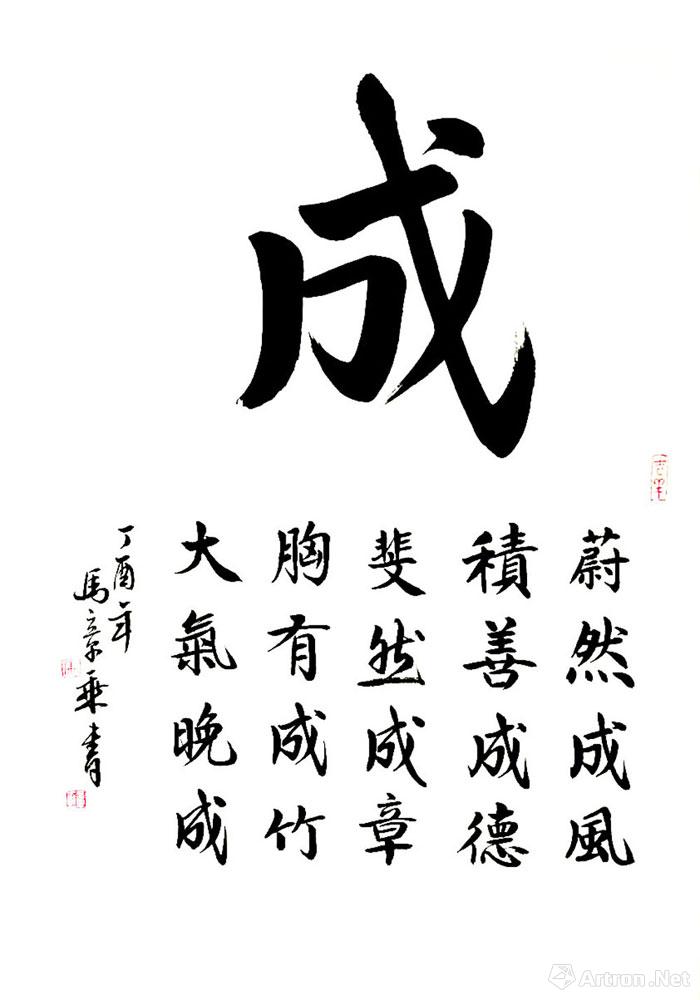 成
蔚然成風
積善成德
斐然成章
胸有成竹
大氣晚成
丁酉年
馬章乘書
Artron.Net